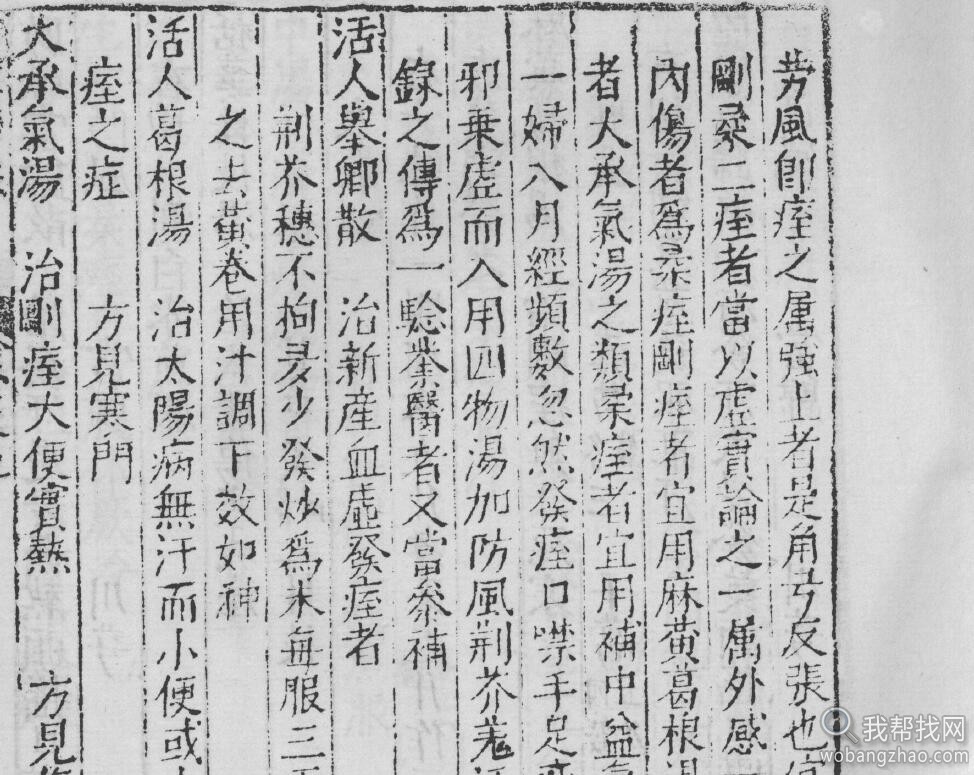 劳風即痓之属強上者是角弓反張也
剛柔二痓者當以虚實論之一属外感
內傷者爲柔痓剛痓者宜用麻黃葛根
者大承氣湯之類柔痓者宜用補中益
一婦入月經頻數忽然發痓口噤手足
邪乗虚而入用四物湯加防風荆芥羗
錄之傳爲一驗業醫者又當叅補
活人舉卿散 治新産血虛發痓者
荆芥穗不拘多少發炒爲末每服三
之大黃卷用汁調下效如神
活人葛根湯 治太陽病無汗而小便或
痓之症 方見寒門
大承氣湯 治剛痓大便實熱 方見
我帮找网
wobangzhao.com